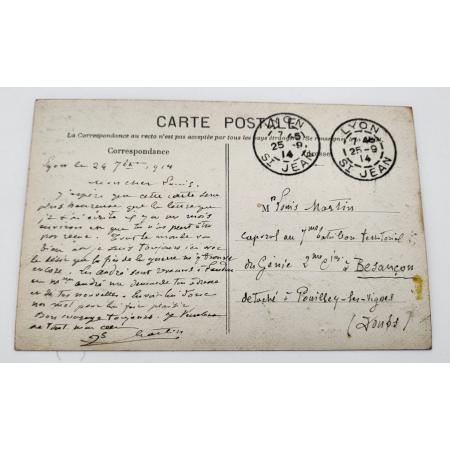 CARTE POSTALE
La Correspondance au recto n'est pas acceptée par tous les pays étrangers. Se renseigner
Correspondance
Adresse
LYON
7-45
25-9
14
ST JEAN
LYON
7-45
25-9
14
ST JEAN
Lyon le 24 7bre 1914
Mon cher Louis.
J'espère que cette carte sera
plus heureuse que la lettre que
je t'ai écrite il y a un mois
environ et que tu n'as peut être
pas reçue. Tout le monde va
bien ici, je suis toujours ici avec
le désir que la fin de la guerre
encore. André
André me demande ton adresse
et de tes nouvelles.
mot pour lui faire plaisir
Bon courage toujours. Je
de tout mon cœur
Martin
Mr Louis Martin
caporal au 7me bataillon territorial
du Génie 2me Cie à Besançon
détaché à Pouilley-les-Vignes
(Doubs)